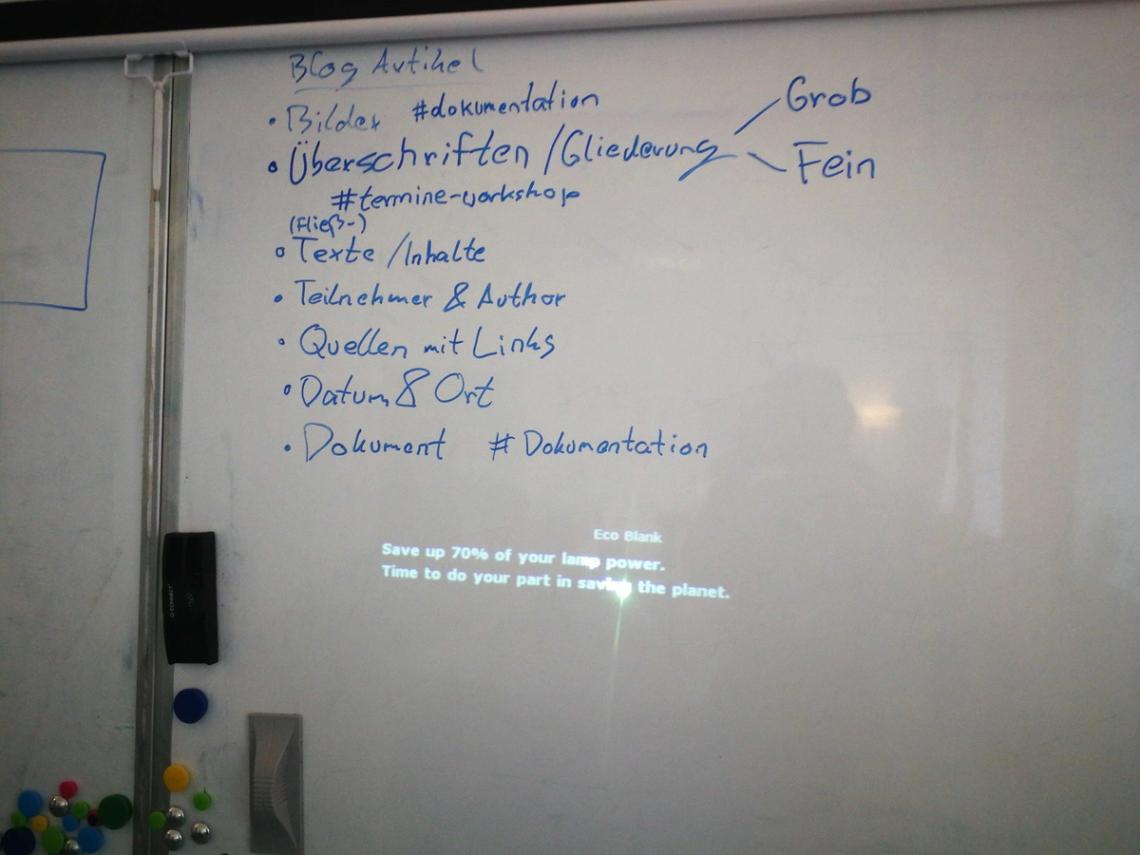 Blog Artikel
• Bilder #dokumentation
• Überschriften /Gliederung
Grob
Fein
#termine-workshop
(Fließ-)
• Texte /Inhalte
• Teilnehmer & Author
• Quellen mit Links
• Datum & Ort
• Dokument # Dokumentation
Eco Blank
Save up 70% of your lamp power.
Time to do your part in saving the planet.
Q-CONNECT